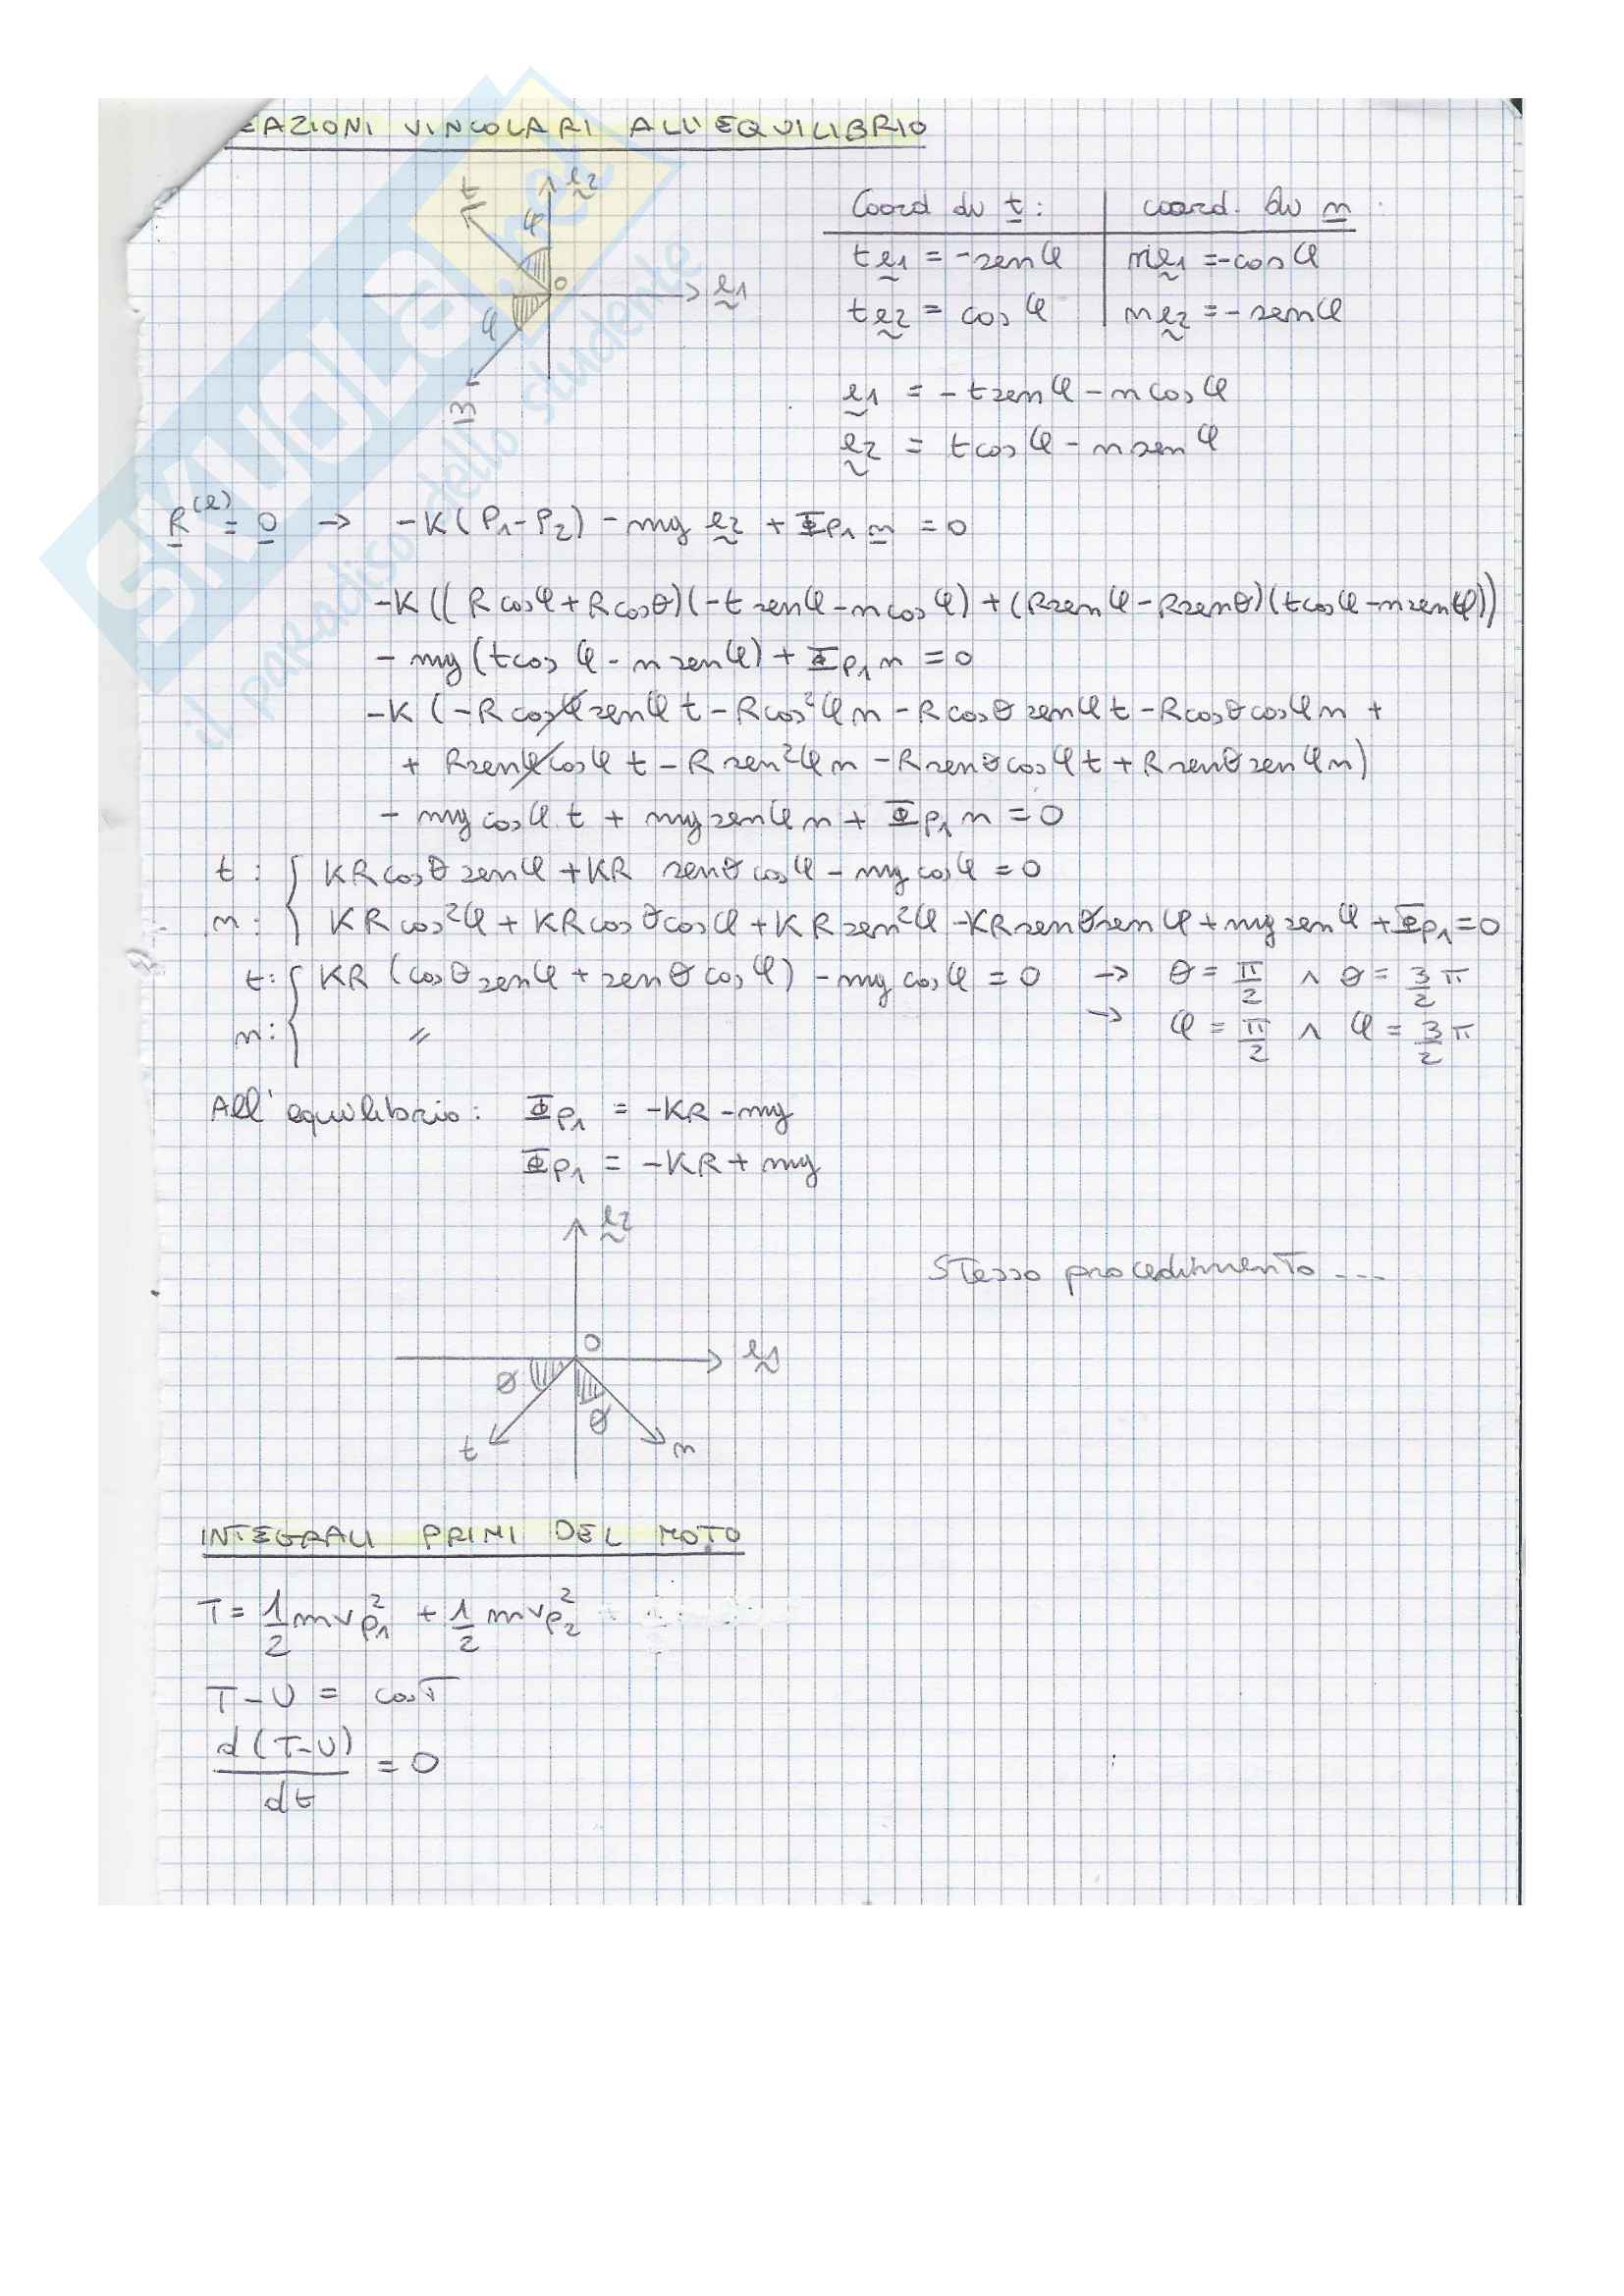 EAZIONI VINCOLARI ALL'EQUILIBRIO
t e2
φ
O e1
φ
n
Coord di t: | coord. di n
t e1 = -senφ | n e1 = -cosφ
t e2 = cosφ | n e2 = -senφ
e1 = -t senφ - n cosφ
e2 = t cosφ - n senφ
R^(e) = 0 → -K(P1-P2) - mg e2 + ΦP1 n = 0
-K((Rcosφ+Rcosθ)(-t senφ-n cosφ)+(Rsenφ-Rsenθ)(t cosφ-n senφ))
- mg(t cosφ - n senφ) + ΦP1 n = 0
-K(-Rcosφ senφ t - Rcos²φ n - Rcosθ senφ t - Rcosθ cosφ n +
+ Rsenφ cosφ t - R sen²φ n - Rsenθ cosφ t + Rsenθ senφ n)
- mg cosφ t + mg senφ n + ΦP1 n = 0
t: { KRcosθ senφ + KR senθ cosφ - mg cosφ = 0
n: { KRcos²φ + KRcosθ cosφ + KR sen²φ - KRsenθ senφ + mg senφ + ΦP1 = 0
t: { KR (cosθ senφ + senθ cosφ) - mg cosφ = 0 → θ = π/2 ∧ θ = 3/2 π
n: { // → φ = π/2 ∧ φ = 3/2 π
All'equilibrio: ΦP1 = -KR - mg
ΦP1 = -KR + mg
e2
Stesso procedimento ---
O e1
θ
θ
t n
INTEGRALI PRIMI DEL MOTO
T = 1/2 m v²P1 + 1/2 m v²P2
T - U = cost
d(T-U)/dt = 0
SKUOLA.net
il paradiso dello studente